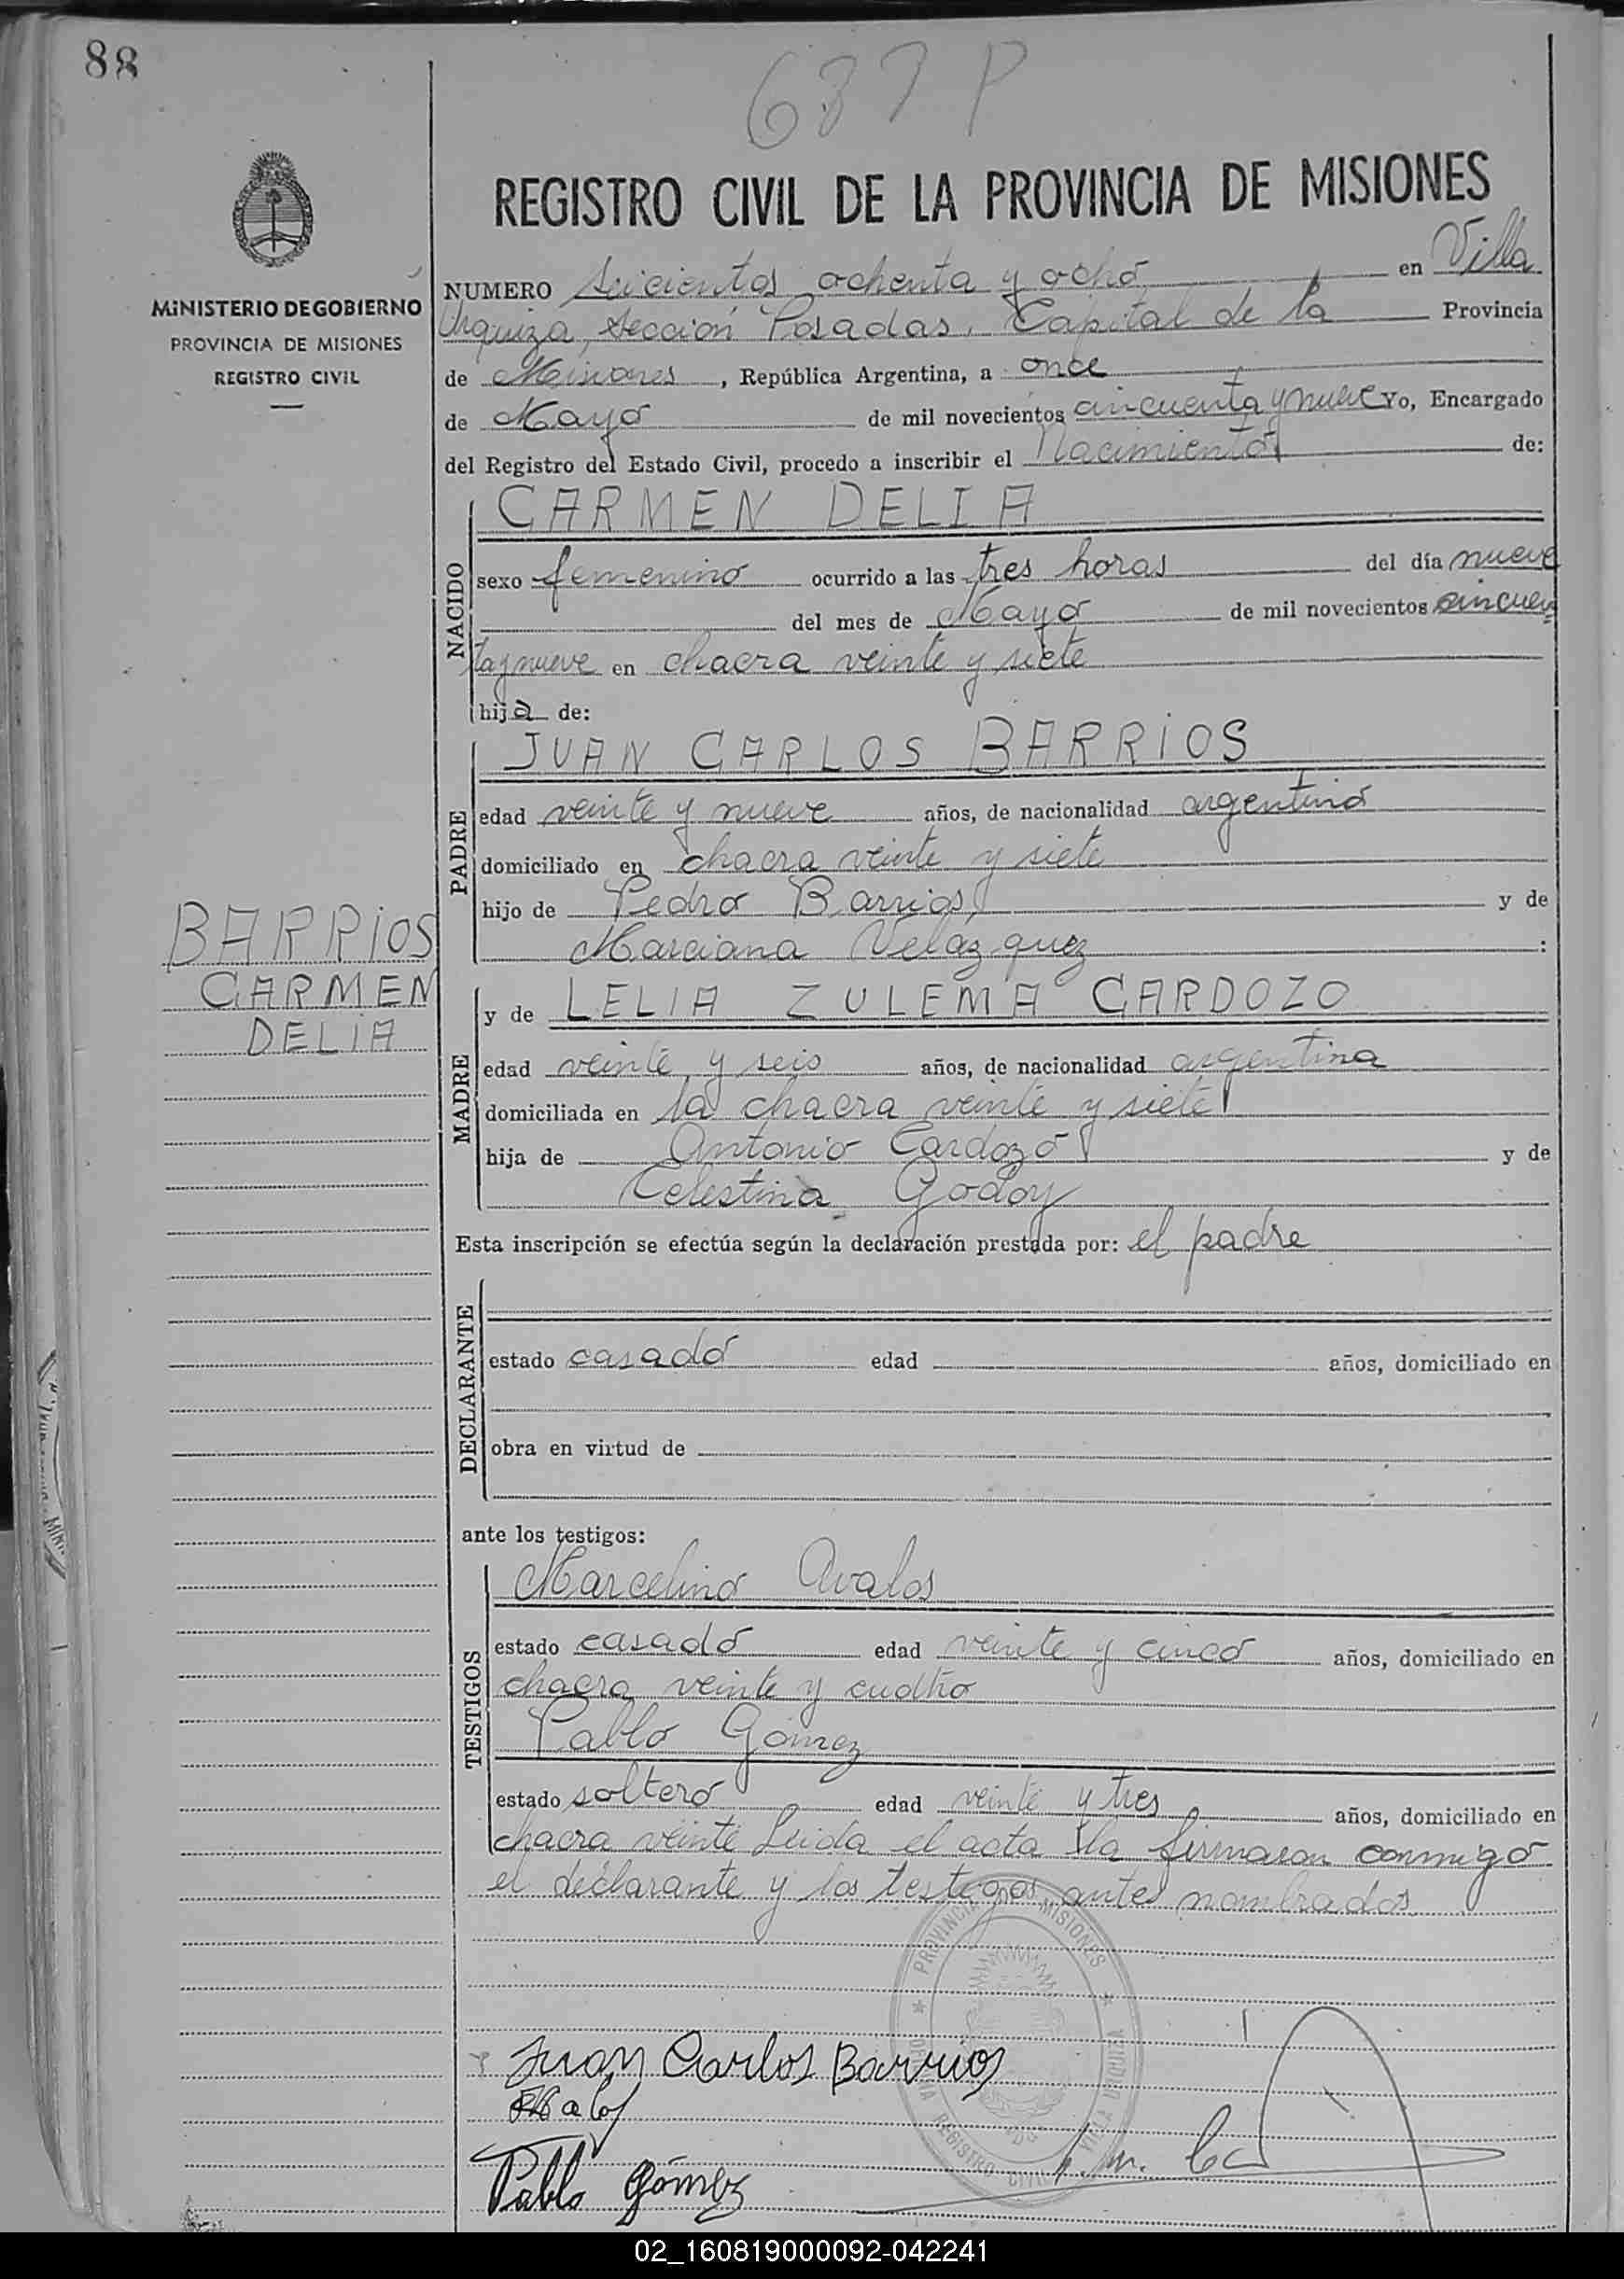 88
687 P
REGISTRO CIVIL DE LA PROVINCIA DE MISIONES
MINISTERIO DE GOBIERNO
PROVINCIA DE MISIONES
REGISTRO CIVIL
NUMERO Seicientos ochenta y ocho en Villa
Urquiza, Sección Posadas, Capital de la Provincia
de Misiones, República Argentina, a once
de Mayo de mil novecientos cincuenta y nueve Yo, Encargado
del Registro del Estado Civil, procedo a inscribir el Nacimiento de:
NACIDO
CARMEN DELIA
sexo femenino ocurrido a las tres horas del día nueve
del mes de Mayo de mil novecientos cincuen
ta y nueve en chacra veinte y siete
hija de:
PADRE
JUAN CARLOS BARRIOS
edad veinte y nueve años, de nacionalidad argentino
domiciliado en chacra veinte y siete
hijo de Pedro Barrios y de
Marciana Velazquez :
BARRIOS
CARMEN
DELIA
MADRE
y de LELIA ZULEMA CARDOZO
edad veinte y seis años, de nacionalidad argentina
domiciliada en la chacra veinte y siete
hija de Antonio Cardozo y de
Celestina Godoy
Esta inscripción se efectúa según la declaración prestada por: el padre
DECLARANTE
estado casado edad años, domiciliado en
obra en virtud de
ante los testigos:
TESTIGOS
Marcelino Avalos
estado casado edad veinte y cinco años, domiciliado en
chacra veinte y cuatro
Pablo Gómez
estado soltero edad veinte y tres años, domiciliado en
chacra veinte Leida el acta la firmaron conmigo
el declarante y los testigos antes nombrados
PROVINCIA DE MISIONES
REGISTRO CIVIL
VILLA URQUIZA
Juan Carlos Barrios
Pablo Gómez
02_160819000092-042241